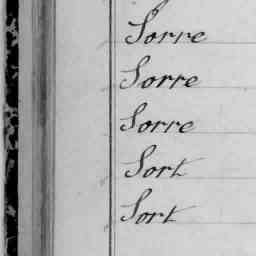 Sorre
Sorre
Sorre
Sort
Sort